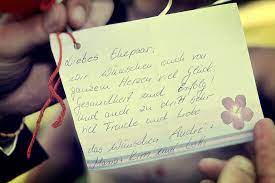 Liebes Ehepaar,
wir wünschen euch von
ganzem Herzen viel Glück,
Gesundheit und Erfolg!
und auch zu dritt
viel Freude und Liebe
das wünschen